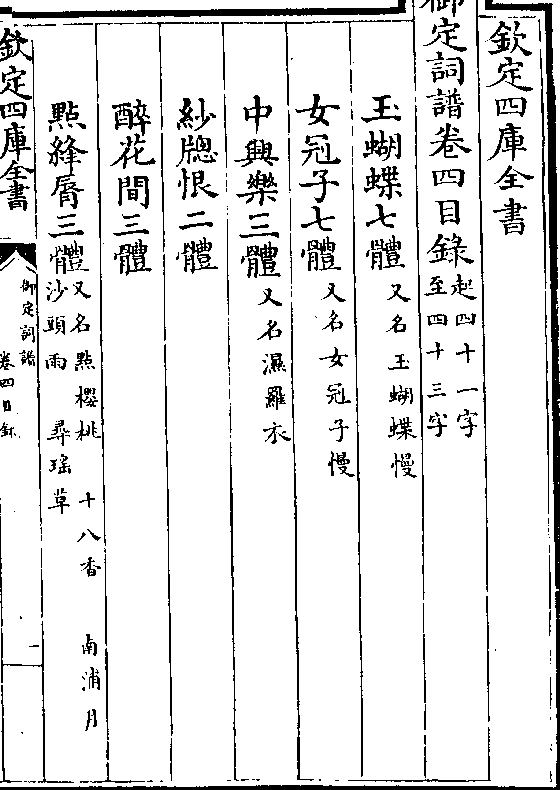 欽定四庫全書
御定詞譜卷四目錄起四十一字
至四十三字
玉蝴蝶七體又名玉蝴蝶慢
女冠子七體又名女冠子慢
中興樂三體又名濕羅衣
紗牕恨二體
醉花間三體
點絳脣三體又名點櫻桃 十八香 南浦月
沙頭雨 尋瑤草
欽定四庫全書
御定詞譜
卷四目録
一